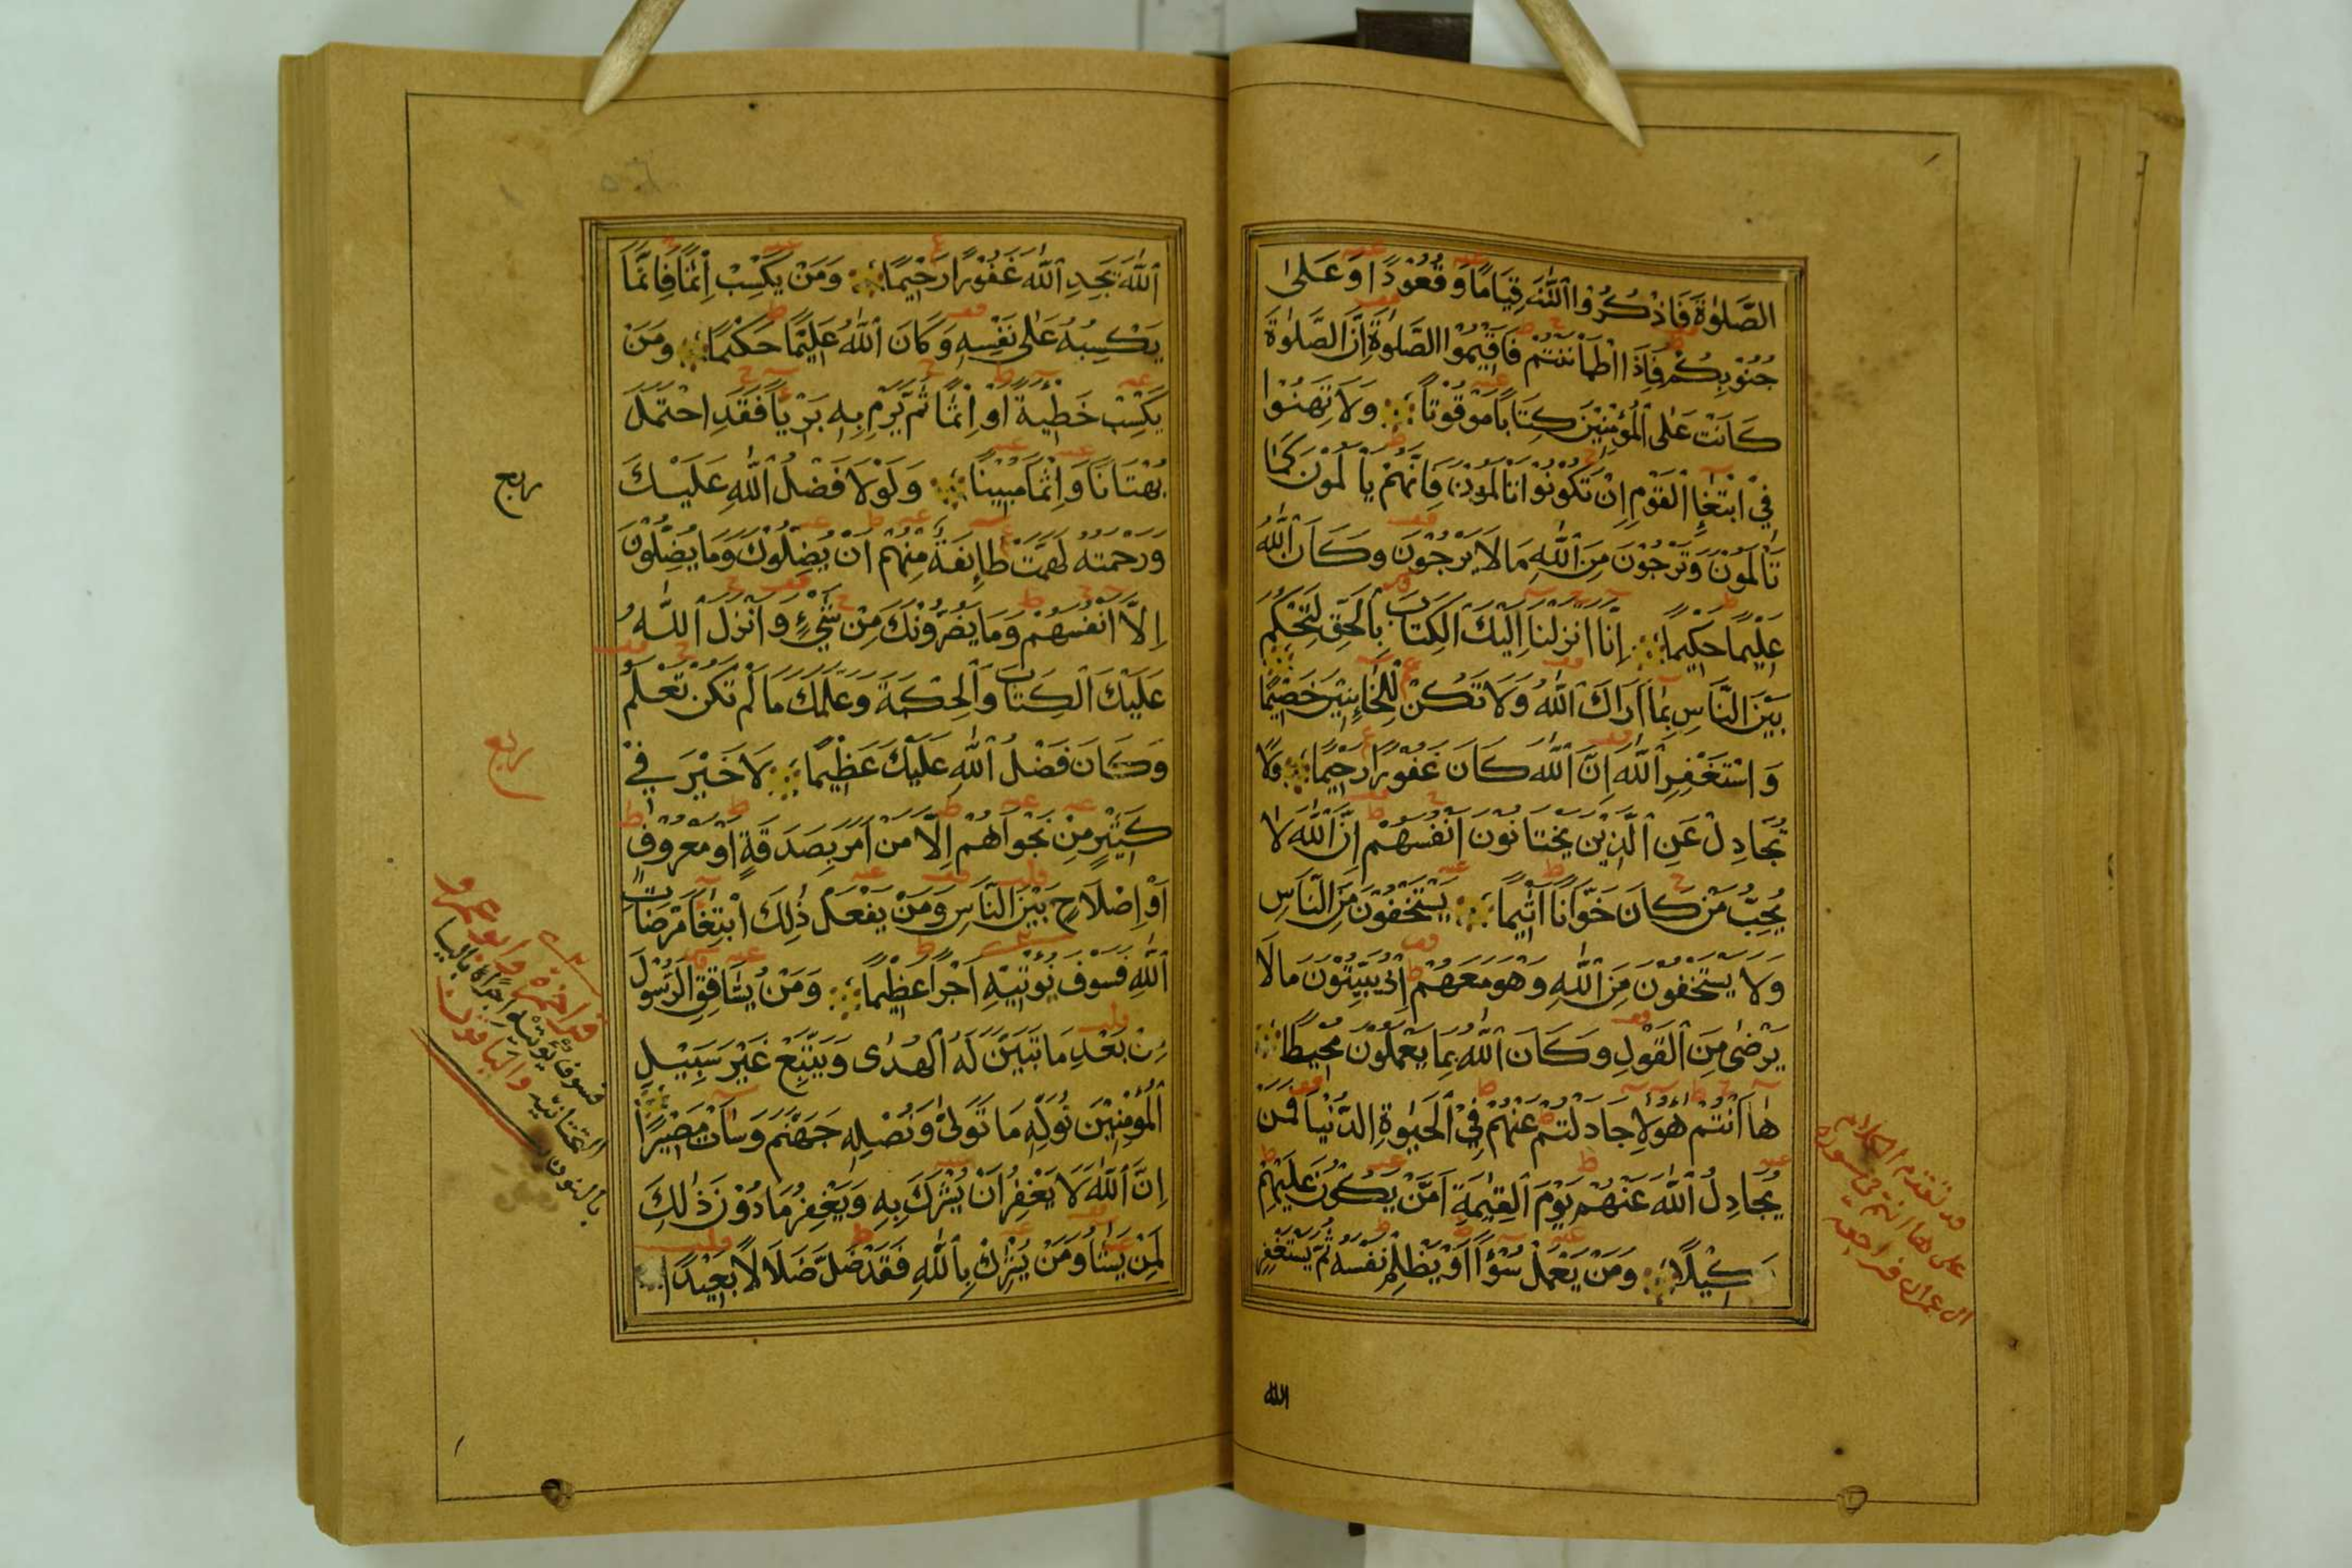 الصَّلٰوةَ فَاذْكُرُوا اللّٰهَ قِيَامًا وَقُعُوْدًا وَعَلٰى
جُنُوْبِكُمْ فَاِذَا اطْمَأْنَنْتُمْ فَاَقِيْمُوا الصَّلٰوةَ اِنَّ الصَّلٰوةَ
كَانَتْ عَلَى الْمُؤْمِنِيْنَ كِتَابًا مَوْقُوْتًا وَلَا تَهِنُوْا
فِيْ ابْتِغَاءِ الْقَوْمِ اِنْ تَكُوْنُوْا تَاْلَمُوْنَ فَاِنَّهُمْ يَاْلَمُوْنَ كَمَا
تَاْلَمُوْنَ وَتَرْجُوْنَ مِنَ اللّٰهِ مَا لَا يَرْجُوْنَ وَكَانَ اللّٰهُ
عَلِيْمًا حَكِيْمًا اِنَّا اَنْزَلْنَا اِلَيْكَ الْكِتَابَ بِالْحَقِّ لِتَحْكُمَ
بَيْنَ النَّاسِ بِمَا اَرَاكَ اللّٰهُ وَلَا تَكُنْ لِلْخَائِنِيْنَ خَصِيْمًا
وَاسْتَغْفِرِ اللّٰهَ اِنَّ اللّٰهَ كَانَ غَفُوْرًا رَحِيْمًا وَلَا
تُجَادِلْ عَنِ الَّذِيْنَ يَخْتَانُوْنَ اَنْفُسَهُمْ اِنَّ اللّٰهَ لَا
يُحِبُّ مَنْ كَانَ خَوَّانًا اَثِيْمًا يَسْتَخْفُوْنَ مِنَ النَّاسِ
وَلَا يَسْتَخْفُوْنَ مِنَ اللّٰهِ وَهُوَ مَعَهُمْ اِذْ يُبَيِّتُوْنَ مَا لَا
يَرْضٰى مِنَ الْقَوْلِ وَكَانَ اللّٰهُ بِمَا يَعْمَلُوْنَ مُحِيْطًا
هَا اَنْتُمْ هٰؤُلَاءِ جَادَلْتُمْ عَنْهُمْ فِي الْحَيٰوةِ الدُّنْيَا فَمَنْ
يُجَادِلُ اللّٰهَ عَنْهُمْ يَوْمَ الْقِيٰمَةِ اَمَّنْ يَكُوْنُ عَلَيْهِمْ
وَكِيْلًا وَمَنْ يَعْمَلْ سُوْءًا اَوْ يَظْلِمْ نَفْسَهُ ثُمَّ يَسْتَغْفِرِ
الله
قد تقدم الكلام
على ها انتم في سورة
ال عمران فراجعه
اللّٰهَ يَجِدِ اللّٰهَ غَفُوْرًا رَحِيْمًا وَمَنْ يَكْسِبْ اِثْمًا فَاِنَّمَا
يَكْسِبُهُ عَلٰى نَفْسِهِ وَكَانَ اللّٰهُ عَلِيْمًا حَكِيْمًا وَمَنْ
يَكْسِبْ خَطِيْئَةً اَوْ اِثْمًا ثُمَّ يَرْمِ بِهِ بَرِيْئًا فَقَدِ احْتَمَلَ
بُهْتَانًا وَاِثْمًا مُبِيْنًا وَلَوْلَا فَضْلُ اللّٰهِ عَلَيْكَ
وَرَحْمَتُهُ لَهَمَّتْ طَائِفَةٌ مِنْهُمْ اَنْ يُضِلُّوْكَ وَمَا يُضِلُّوْنَ
اِلَّا اَنْفُسَهُمْ وَمَا يَضُرُّوْنَكَ مِنْ شَيْءٍ وَاَنْزَلَ اللّٰهُ
عَلَيْكَ الْكِتَابَ وَالْحِكْمَةَ وَعَلَّمَكَ مَا لَمْ تَكُنْ تَعْلَمُ
وَكَانَ فَضْلُ اللّٰهِ عَلَيْكَ عَظِيْمًا لَا خَيْرَ فِيْ
كَثِيْرٍ مِنْ نَجْوَاهُمْ اِلَّا مَنْ اَمَرَ بِصَدَقَةٍ اَوْ مَعْرُوْفٍ
اَوْ اِصْلَاحٍ بَيْنَ النَّاسِ وَمَنْ يَفْعَلْ ذٰلِكَ ابْتِغَاءَ مَرْضَاتِ
اللّٰهِ فَسَوْفَ نُؤْتِيْهِ اَجْرًا عَظِيْمًا وَمَنْ يُشَاقِقِ الرَّسُوْلَ
مِنْ بَعْدِ مَا تَبَيَّنَ لَهُ الْهُدٰى وَيَتَّبِعْ غَيْرَ سَبِيْلِ
الْمُؤْمِنِيْنَ نُوَلِّهِ مَا تَوَلّٰى وَنُصْلِهِ جَهَنَّمَ وَسَاءَتْ مَصِيْرًا
اِنَّ اللّٰهَ لَا يَغْفِرُ اَنْ يُشْرَكَ بِهِ وَيَغْفِرُ مَا دُوْنَ ذٰلِكَ
لِمَنْ يَشَاءُ وَمَنْ يُشْرِكْ بِاللّٰهِ فَقَدْ ضَلَّ ضَلَالًا بَعِيْدًا
ربع
ربع
قرا حمزة وابو عمرو
فسوف يؤتيه اجرا بالياء
التحتانيه والباقون
بالنون